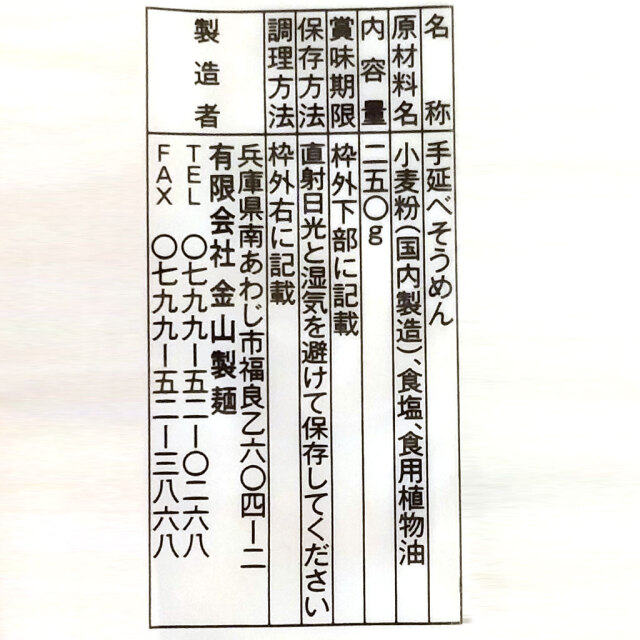 名称 手延べそうめん
原材料名 小麦粉(国内製造)、食塩、食用植物油
内容量 二五〇g
賞味期限 枠外下部に記載
保存方法 直射日光と湿気を避けて保存してください
調理方法 枠外右に記載
製造者 兵庫県南あわじ市福良乙六〇四ー二
有限会社 金山製麺
TEL 〇七九九ー五二ー〇二六八
FAX 〇七九九ー五二ー三八六八